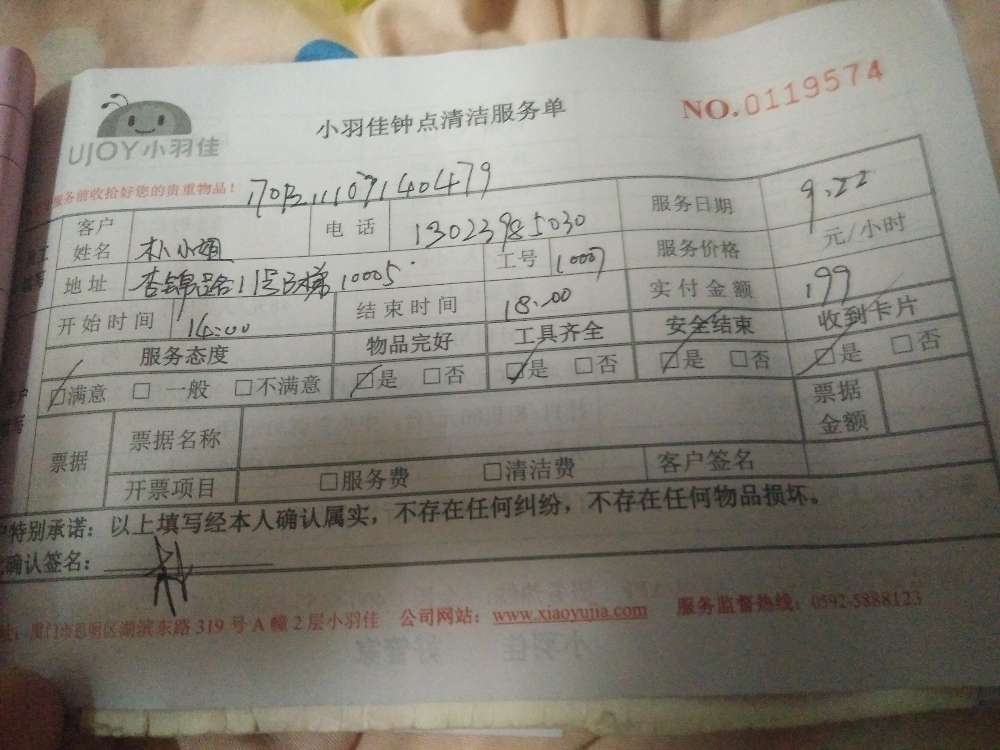 UJOY小羽佳
小羽佳钟点清洁服务单
NO.0119574
服务前收拾好您的贵重物品！
客户姓名 朴小姐 电话 13023985030 服务日期 9.22
地址 工号 服务价格 元/小时
开始时间 14:00 结束时间 18:00 实付金额 199
服务态度 物品完好 工具齐全 安全结束 收到卡片
☑满意 □ 一般 □不满意 ☑是 □否 ☑是 □否 ☑是 □否 ☑是 □否
票据 票据名称 票据金额
开票项目 □服务费 □清洁费 客户签名
特别承诺：以上填写经本人确认属实，不存在任何纠纷，不存在任何物品损坏。
确认签名：
厦门市思明区湖滨东路 319 号 A 幢 2 层小羽佳 公司网站：www.xiaoyujia.com 服务监督热线：0592-5888123